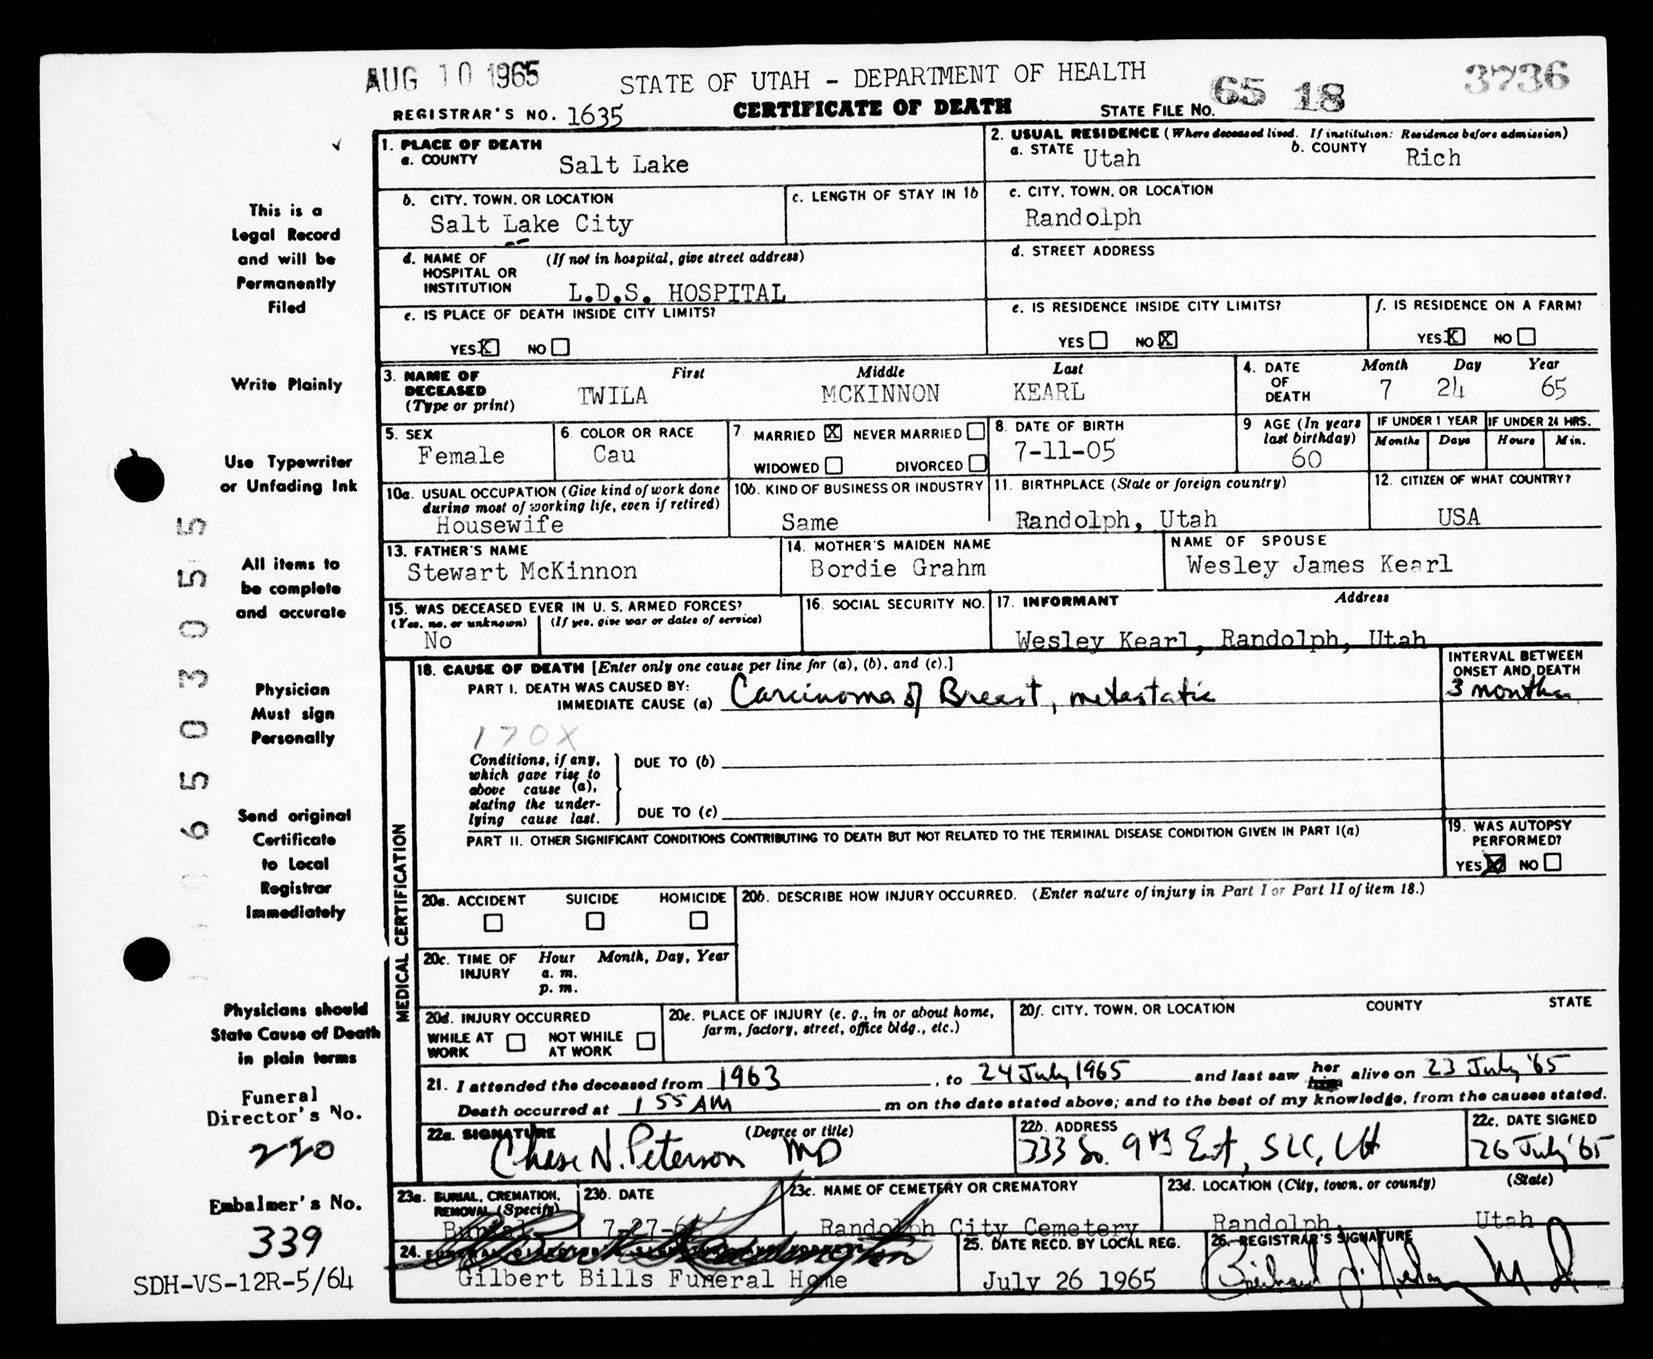 AUG 10 1965
STATE OF UTAH - DEPARTMENT OF HEALTH
65 18
3736
REGISTRAR'S NO. 1635
CERTIFICATE OF DEATH
STATE FILE NO.
This is a
Legal Record
and will be
Permanently
Filed
Write Plainly
Use Typewriter
or Unfading Ink
All items to
be complete
and accurate
Physician
Must sign
Personally
Send original
Certificate
to Local
Registrar
Immediately
Physicians should
State Cause of Death
in plain terms
Funeral
Director's No.
220
Embalmer's No.
339
SDH-VS-12R-5/64
0 6 5 0 3 0 5 5
1. PLACE OF DEATH
a. COUNTY
Salt Lake
2. USUAL RESIDENCE (Where deceased lived. If institution: Residence before admission)
a. STATE Utah
b. COUNTY Rich
b. CITY, TOWN, OR LOCATION
Salt Lake City
c. LENGTH OF STAY IN 1b
c. CITY, TOWN, OR LOCATION
Randolph
d. NAME OF HOSPITAL OR INSTITUTION
(If not in hospital, give street address)
L.D.S. HOSPITAL
d. STREET ADDRESS
e. IS PLACE OF DEATH INSIDE CITY LIMITS?
YES X NO
e. IS RESIDENCE INSIDE CITY LIMITS?
YES NO X
f. IS RESIDENCE ON A FARM?
YES X NO
3. NAME OF DECEASED (Type or print)
First Middle Last
TWILA MCKINNON KEARL
4. DATE OF DEATH
Month Day Year
7 24 65
5. SEX
Female
6. COLOR OR RACE
Cau
7. MARRIED X NEVER MARRIED
WIDOWED DIVORCED
8. DATE OF BIRTH
7-11-05
9 AGE (In years last birthday)
60
IF UNDER 1 YEAR
Months Days
IF UNDER 24 HRS.
Hours Min.
10a. USUAL OCCUPATION (Give kind of work done during most of working life, even if retired)
Housewife
10b. KIND OF BUSINESS OR INDUSTRY
Same
11. BIRTHPLACE (State or foreign country)
Randolph, Utah
12. CITIZEN OF WHAT COUNTRY?
USA
13. FATHER'S NAME
Stewart McKinnon
14. MOTHER'S MAIDEN NAME
Bordie Grahm
NAME OF SPOUSE
Wesley James Kearl
15. WAS DECEASED EVER IN U. S. ARMED FORCES?
(Yes, no, or unknown) (If yes, give war or dates of service)
No
16. SOCIAL SECURITY NO.
17. INFORMANT Address
Wesley Kearl, Randolph, Utah
MEDICAL CERTIFICATION
18. CAUSE OF DEATH [Enter only one cause per line for (a), (b), and (c).]
PART I. DEATH WAS CAUSED BY:
IMMEDIATE CAUSE (a) Carcinoma of Breast, metastatic
INTERVAL BETWEEN ONSET AND DEATH
3 months
170X
Conditions, if any, which gave rise to above cause (a), stating the underlying cause last.
DUE TO (b)
DUE TO (c)
PART II. OTHER SIGNIFICANT CONDITIONS CONTRIBUTING TO DEATH BUT NOT RELATED TO THE TERMINAL DISEASE CONDITION GIVEN IN PART I(a)
19. WAS AUTOPSY PERFORMED?
YES X NO
20a. ACCIDENT SUICIDE HOMICIDE
20b. DESCRIBE HOW INJURY OCCURRED. (Enter nature of injury in Part I or Part II of item 18.)
20c. TIME OF INJURY
Hour Month, Day, Year
a. m.
p. m.
20d. INJURY OCCURRED
WHILE AT WORK NOT WHILE AT WORK
20e. PLACE OF INJURY (e. g., in or about home, farm, factory, street, office bldg., etc.)
20f. CITY, TOWN, OR LOCATION COUNTY STATE
21. I attended the deceased from 1963, to 24 July 1965 and last saw her him alive on 23 July '65
Death occurred at 1 55 AM m on the date stated above; and to the best of my knowledge, from the causes stated.
22a. SIGNATURE (Degree or title)
Chase N. Peterson MD
22b. ADDRESS
333 So. 9th East, SLC, Ut
22c. DATE SIGNED
26 July '65
23a. BURIAL, CREMATION, REMOVAL (Specify)
Burial
23b. DATE
7-27-65
23c. NAME OF CEMETERY OR CREMATORY
Randolph City Cemetery
23d. LOCATION (City, town, or county) (State)
Randolph, Utah
24.
Gilbert Bills Funeral Home
25. DATE RECD. BY LOCAL REG.
July 26 1965
26. REGISTRAR'S SIGNATURE
M D